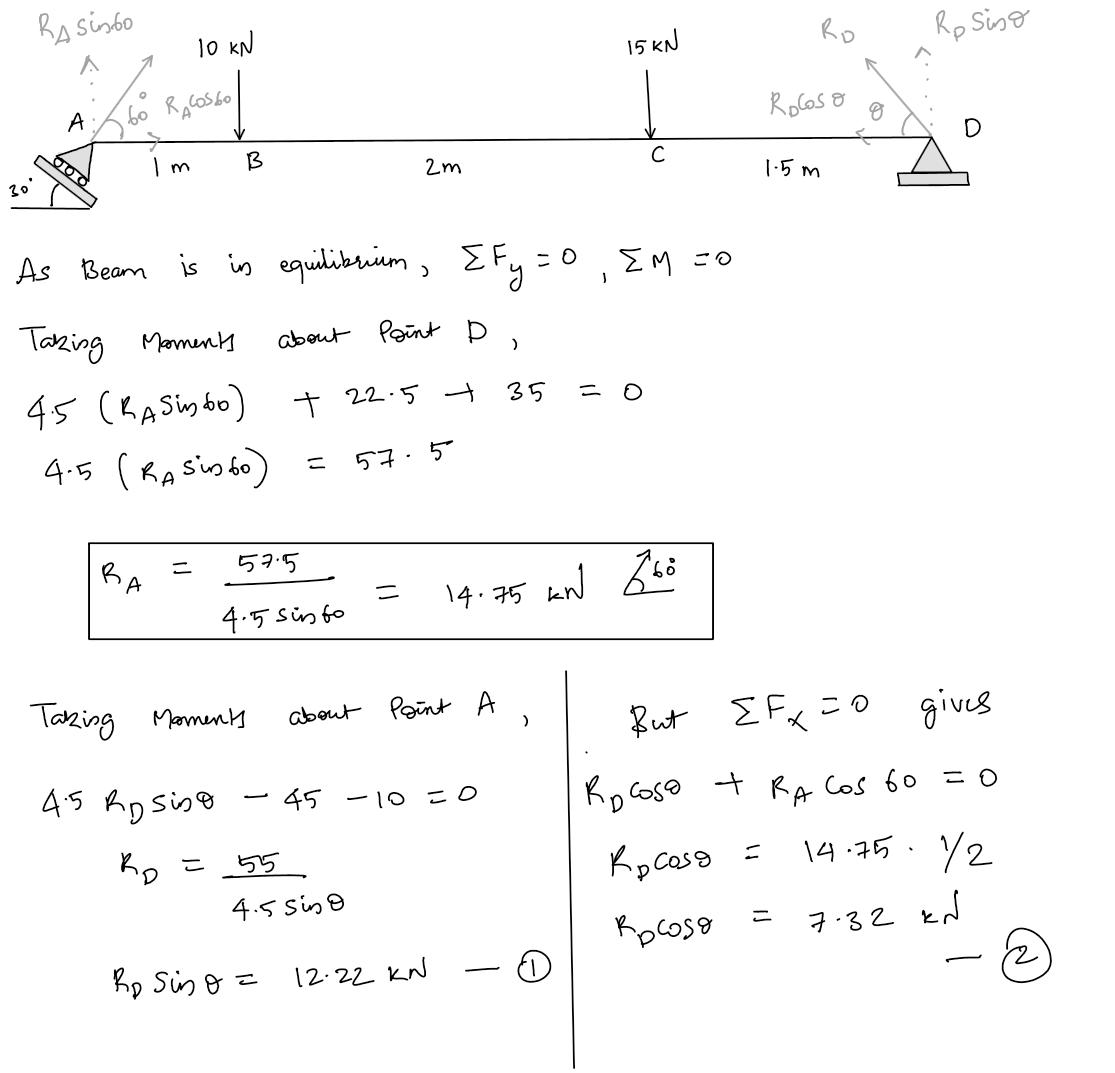 R_A sin60 10 kN 15 kN R_D R_D sinθ
A 60° R_A cos60 R_D cosθ θ D
30° 1 m B 2m C 1.5 m
As Beam is in equilibrium, ΣF_y = 0, ΣM = 0
Taking Moments about Point D,
4.5 (R_A sin60) + 22.5 + 35 = 0
4.5 (R_A sin60) = 57.5
R_A = 57.5 / 4.5 sin60 = 14.75 kN 60°
Taking Moments about Point A,
4.5 R_D sinθ - 45 - 10 = 0
R_D = 55 / 4.5 sinθ
R_D sinθ = 12.22 kN — ①
But ΣF_x = 0 gives
R_D cosθ + R_A cos 60 = 0
R_D cosθ = 14.75 . 1/2
R_D cosθ = 7.32 kN
— ②